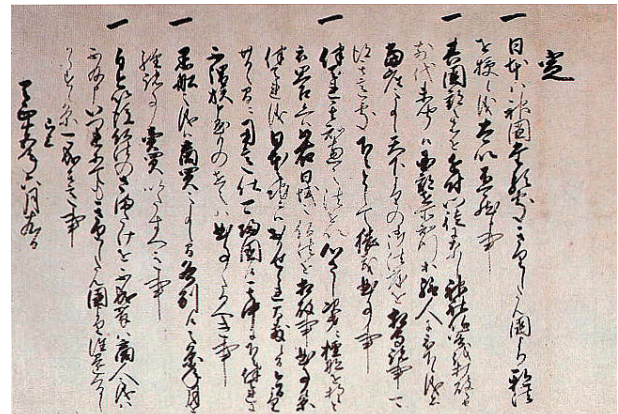 定
一 日本ハ神国たる処きりしたん国より邪法
を授候儀太以不可然候事
一 其国郡之者を近付門徒になし神社仏閣を打破之
前代未聞候国郡在所知行等給人に被下候儀者
当座之事候天下よりの御法度を相守諸事可
得其意処下々として猥義曲事事
一 伴天連其知恵之法を以心さし次第ニ檀那を持候
と被思召候へハ如右日域之仏法を相破事曲事候条
伴天連儀日本之地ニハおかせられ間敷候間今日より
廿日之間ニ用意仕可帰国候其中に下々伴天連に
不謂族申懸もの在之ハ曲事たるへき事
一 黒船之儀ハ商買之事候間各別に候之条年月を
経諸事売買いたすへき事
一 自今以後仏法のさまたけを不成輩ハ商人之儀ハ
不及申いつれにてもきりしたん国より往還くる
しからす候条可成其意事
已上
天正十五年六月十九日